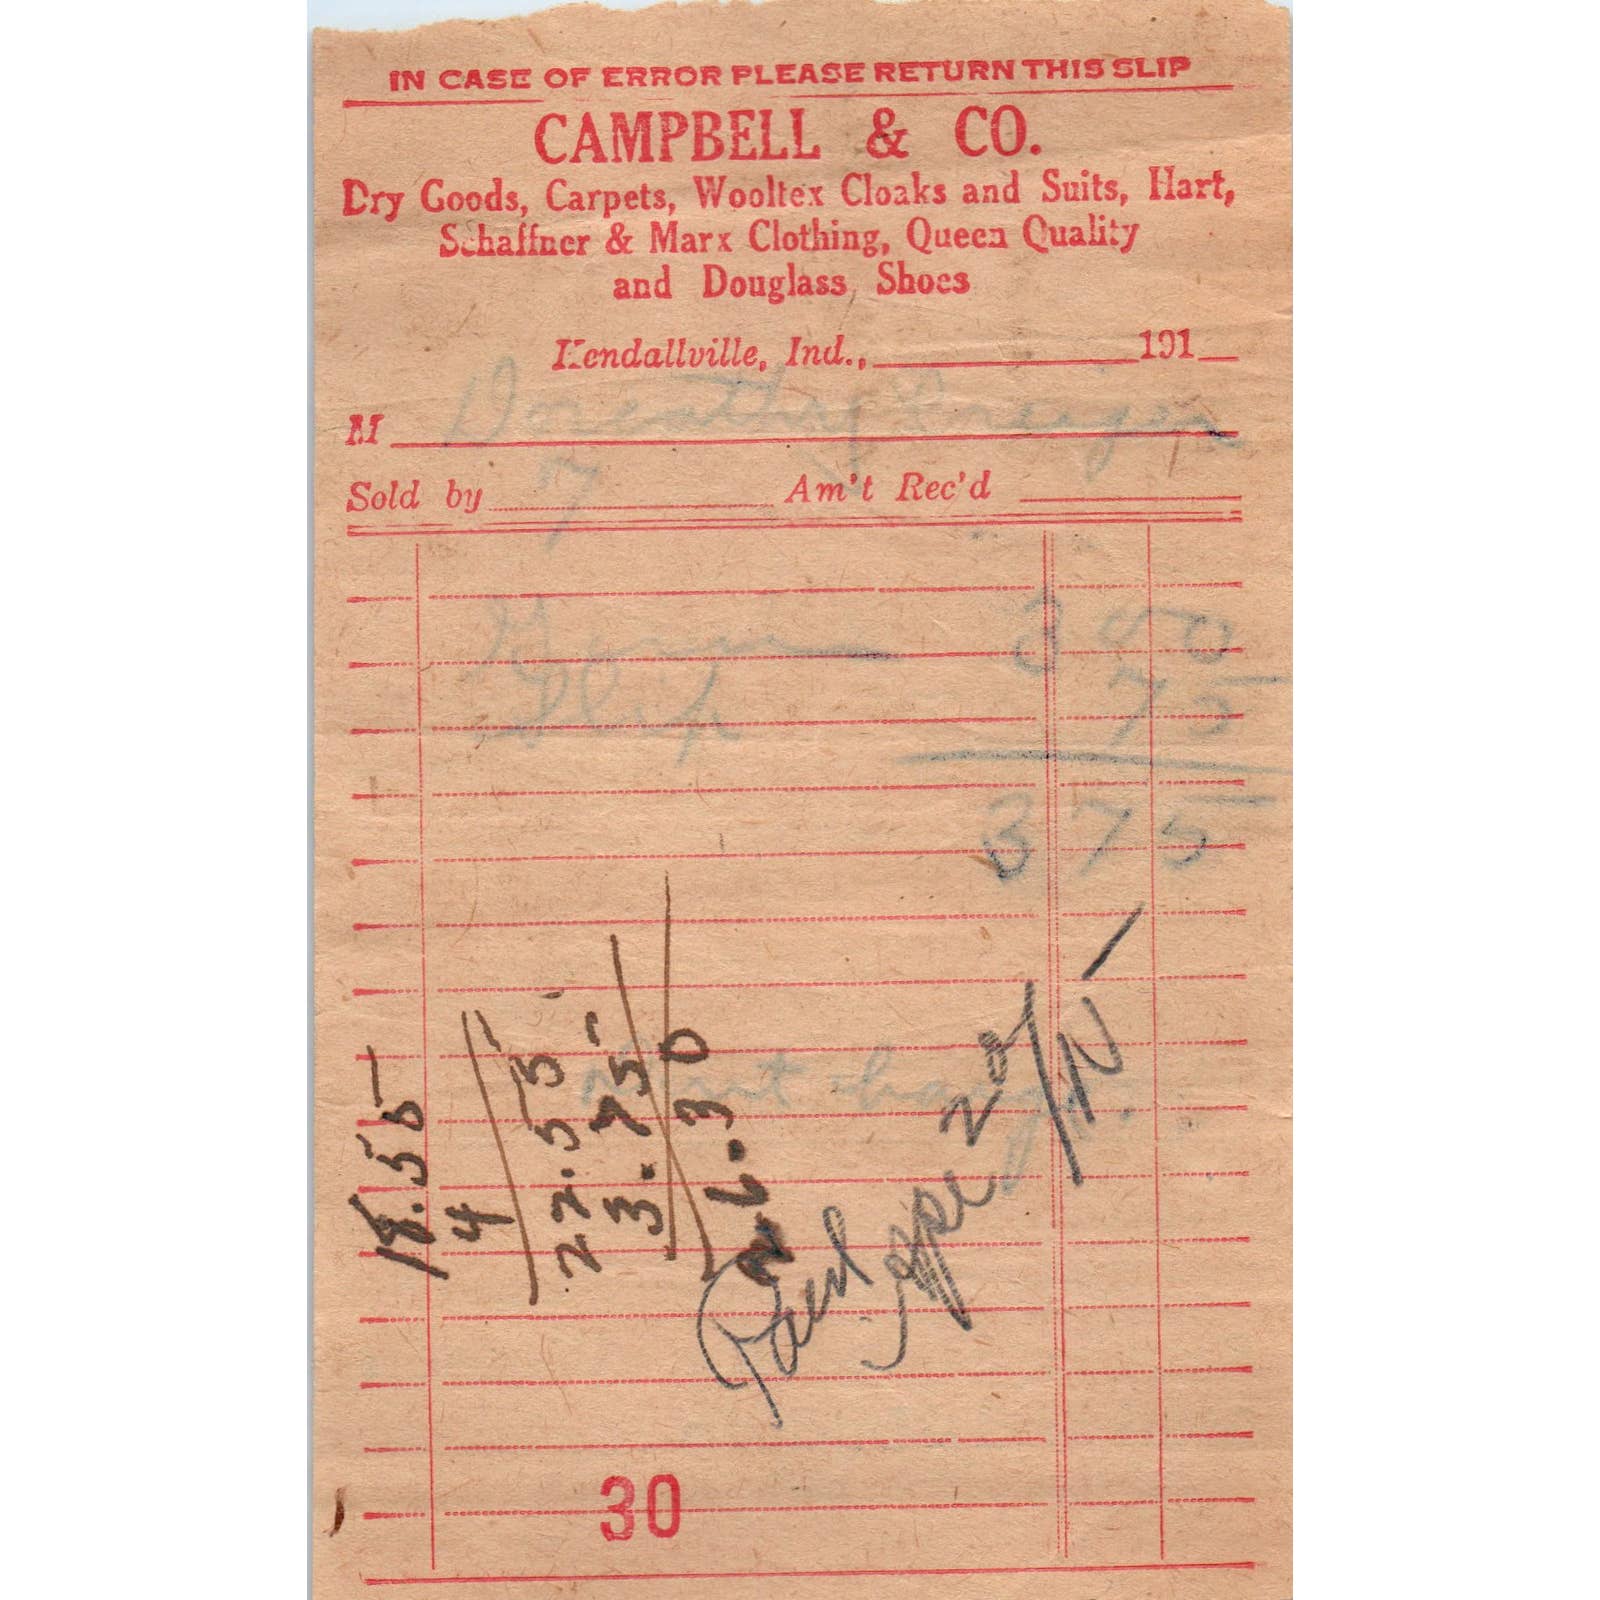 IN CASE OF ERROR PLEASE RETURN THIS SLIP
CAMPBELL & CO.
Dry Goods, Carpets, Wooltex Cloaks and Suits, Hart,
Schaffner & Marx Clothing, Queen Quality
and Douglass Shoes
Kendallville, Ind., 191
M Dorathy
Sold by 7 Am't Rec'd
3 00
Slip 75
3 75
18.55
4
22.55
3.75
26.30
Paid
30